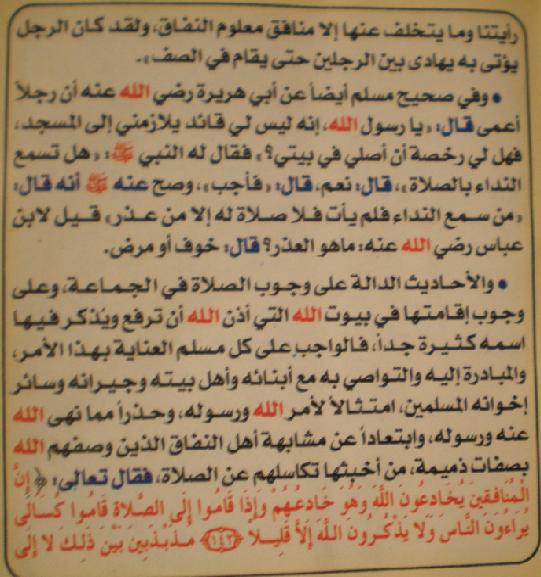 رأيتنا وما يتخلف عنها إلا منافق معلوم النفاق، ولقد كان الرجل
يؤتى به يهادى بين الرجلين حتى يقام في الصف».
• وفي صحيح مسلم أيضاً عن أبي هريرة رضي الله عنه أن رجلاً
أعمى قال: «يا رسول الله، إنه ليس لي قائد يلازمني إلى المسجد،
فهل لي رخصة أن أصلي في بيتي؟» فقال له النبي ﷺ: «هل تسمع
النداء بالصلاة»، قال: نعم، قال: «فأجب»، وصح عنه ﷺ أنه قال:
«من سمع النداء فلم يأت فلا صلاة له إلا من عذر» قيل لابن
عباس رضي الله عنه: ماهو العذر؟ قال: خوف أو مرض.
• والأحاديث الدالة على وجوب الصلاة في الجماعة، وعلى
وجوب إقامتها في بيوت الله التي أذن الله أن ترفع ويذكر فيها
اسمه كثيرة جداً، فالواجب على كل مسلم العناية بهذا الأمر،
والمبادرة إليه والتواصي به مع أبنائه وأهل بيته وجيرانه وسائر
إخوانه المسلمين، امتثالاً لأمر الله ورسوله، وحذراً مما نهى الله
عنه ورسوله، وابتعاداً عن مشابهة أهل النفاق الذين وصفهم الله
بصفات ذميمة، من أخبثها تكاسلهم عن الصلاة، فقال تعالى: ﴿إِنَّ
الْمُنَافِقِينَ يُخَادِعُونَ اللَّهَ وَهُوَ خَادِعُهُمْ وَإِذَا قَامُوا إِلَى الصَّلَاةِ قَامُوا كُسَالَى
يُرَاءُونَ النَّاسَ وَلَا يَذْكُرُونَ اللَّهَ إِلَّا قَلِيلًا ﴿١٤٢﴾ مُذَبْذَبِينَ بَيْنَ ذَلِكَ لَا إِلَى